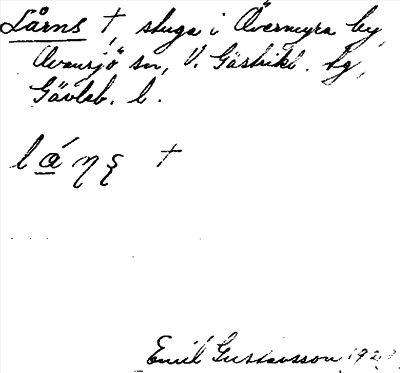 Lårns †, stuga i Övermyra by
Ovansjö sn, V. Gästrikl. hg,
Gävleb. l.
†
Emil Gustavsson